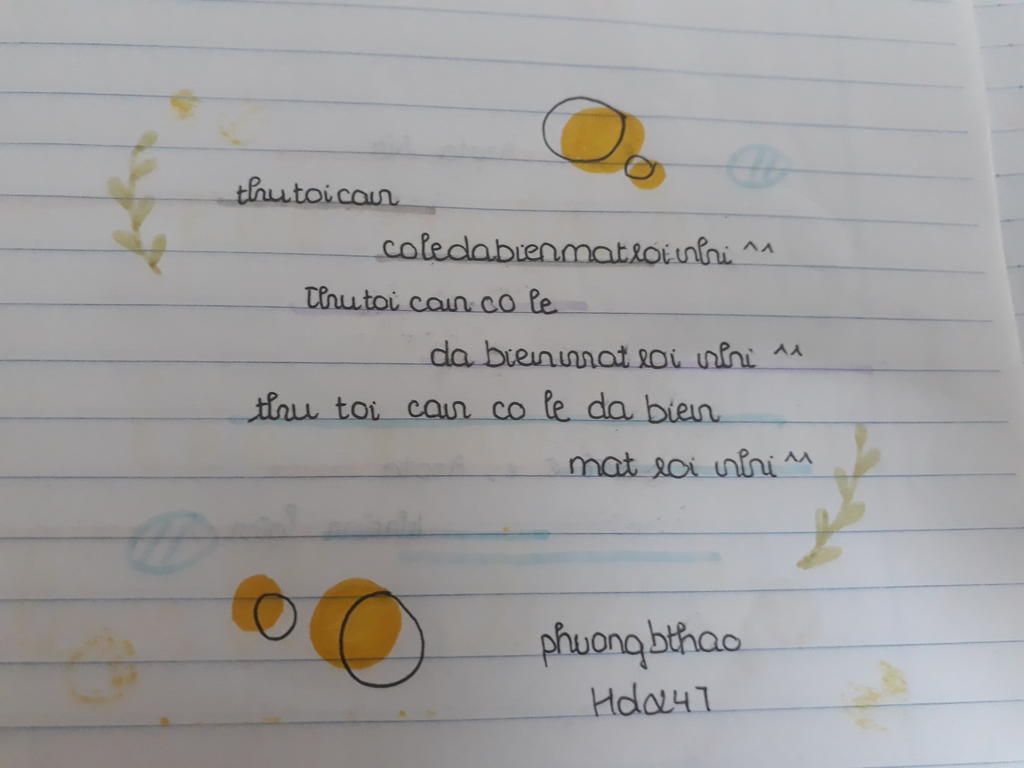 thutoican
coledabienmatroinhi ^^
Thutoican co le
da bienmat roi nhi ^^
thu toi can co le da bien
mat roi nhi ^^
phuongbthao